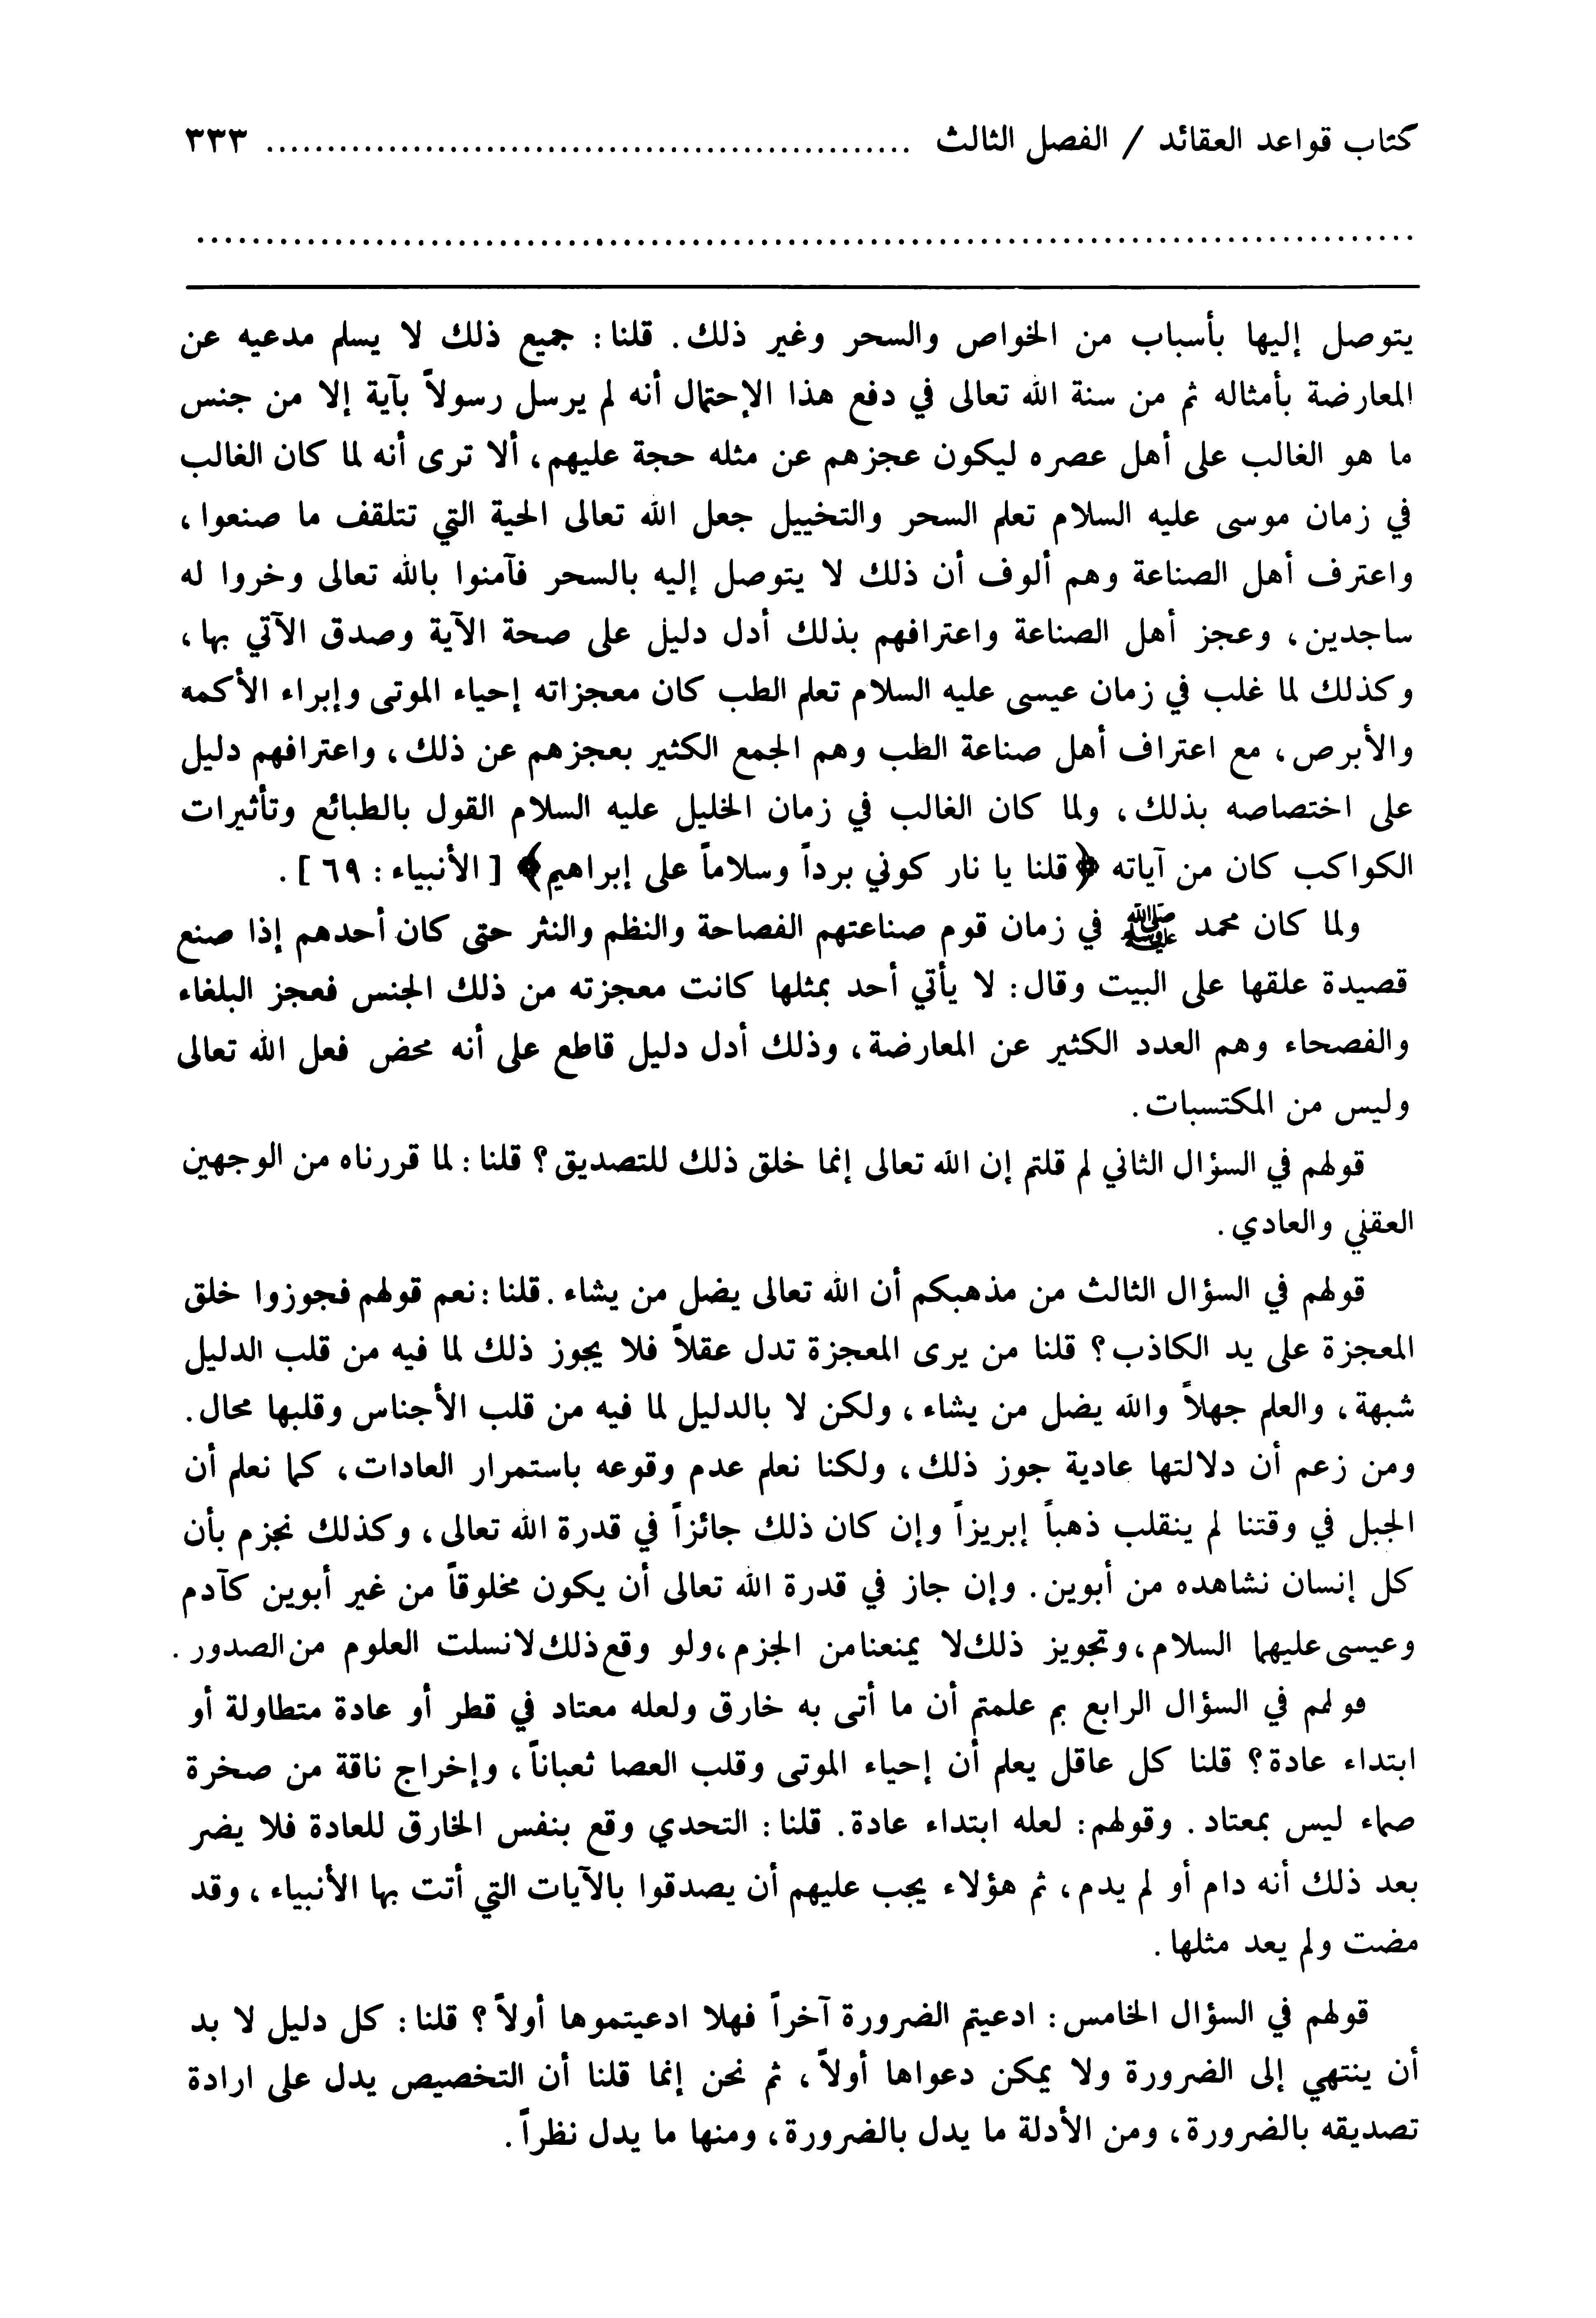 كتاب قواعد العقائد / الفصل الثالث ..................................................... ٣٣٣
..........................................................................................
يتوصل إليها بأسباب من الخواص والسحر وغير ذلك. قلنا: جميع ذلك لا يسلم مدعيه عن
المعارضة بأمثاله ثم من سنة الله تعالى في دفع هذا الإحتمال أنه لم يرسل رسولاً بآية إلا من جنس
ما هو الغالب على أهل عصره ليكون عجزهم عن مثله حجة عليهم، ألا ترى أنه لما كان الغالب
في زمان موسى عليه السلام تعلم السحر والتخييل جعل الله تعالى الحية التي تتلقف ما صنعوا،
واعترف أهل الصناعة وهم ألوف أن ذلك لا يتوصل إليه بالسحر فآمنوا بالله تعالى وخروا له
ساجدين، وعجز أهل الصناعة واعترافهم بذلك أدل دليل على صحة الآية وصدق الآتي بها،
وكذلك لما غلب في زمان عيسى عليه السلام تعلم الطب كان معجزاته إحياء الموتى وإبراء الأكمه
والأبرص، مع اعتراف أهل صناعة الطب وهم الجمع الكثير بعجزهم عن ذلك، واعترافهم دليل
على اختصاصه بذلك، ولما كان الغالب في زمان الخليل عليه السلام القول بالطبائع وتأثيرات
الكواكب كان من آياته ﴿قلنا يا نار كوني برداً وسلاماً على إبراهيم﴾ [ الأنبياء: ٦٩ ] .
ولما كان محمد ﷺ في زمان قوم صناعتهم الفصاحة والنظم والنثر حتى كان أحدهم إذا صنع
قصيدة علقها على البيت وقال: لا يأتي أحد بمثلها كانت معجزته من ذلك الجنس فعجز البلغاء
والفصحاء وهم العدد الكثير عن المعارضة، وذلك أدل دليل قاطع على أنه محض فعل الله تعالى
وليس من المكتسبات.
قولهم في السؤال الثاني لم قلتم إن الله تعالى إنما خلق ذلك للتصديق؟ قلنا: لما قررناه من الوجهين
العقلي والعادي.
قولهم في السؤال الثالث من مذهبكم أن الله تعالى يضل من يشاء. قلنا: نعم قولهم فجوزوا خلق
المعجزة على يد الكاذب؟ قلنا من يرى المعجزة تدل عقلاً فلا يجوز ذلك لما فيه من قلب الدليل
شبهة، والعلم جهلاً والله يضل من يشاء، ولكن لا بالدليل لما فيه من قلب الأجناس وقلبها محال.
ومن زعم أن دلالتها عادية جوز ذلك، ولكنا نعلم عدم وقوعه باستمرار العادات، كما نعلم أن
الجبل في وقتنا لم ينقلب ذهباً إبريزاً وإن كان ذلك جائزاً في قدرة الله تعالى، وكذلك نجزم بأن
كل إنسان نشاهده من أبوين. وإن جاز في قدرة الله تعالى أن يكون مخلوقاً من غير أبوين كآدم
وعيسى عليهما السلام، وتجويز ذلك لا يمنعنا من الجزم، ولو وقع ذلك لانسلت العلوم من الصدور.
قولهم في السؤال الرابع بم علمتم أن ما أتى به خارق ولعله معتاد في قطر أو عادة متطاولة أو
ابتداء عادة؟ قلنا كل عاقل يعلم أن إحياء الموتى وقلب العصا ثعباناً، وإخراج ناقة من صخرة
صماء ليس بمعتاد. وقولهم: لعله ابتداء عادة. قلنا: التحدي وقع بنفس الخارق للعادة فلا يضر
بعد ذلك أنه دام أو لم يدم، ثم هؤلاء يجب عليهم أن يصدقوا بالآيات التي أتت بها الأنبياء، وقد
مضت ولم يعد مثلها.
قولهم في السؤال الخامس: ادعيتم الضرورة آخراً فهلا ادعيتموها أولاً؟ قلنا: كل دليل لا بد
أن ينتهي إلى الضرورة ولا يمكن دعواها أولاً، ثم نحن إنما قلنا أن التخصيص يدل على ارادة
تصديقه بالضرورة، ومن الأدلة ما يدل بالضرورة، ومنها ما يدل نظراً.